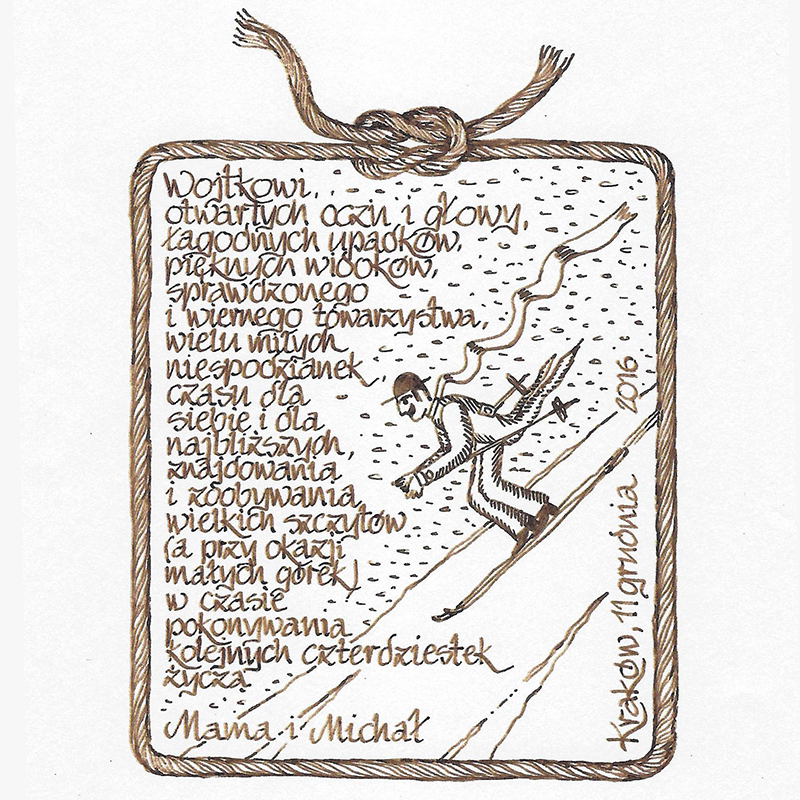 Wojtkowi,
otwartych oczu i głowy,
łagodnych upadków,
pięknych widoków,
sprawdzonego
i wiernego towarzystwa,
wielu miłych
niespodzianek,
czasu dla
siebie i dla
najbliższych,
znajdowania
i zdobywania
wielkich szczytów
(a przy okazji
małych górek)
w czasie
pokonywania
kolejnych czterdziestek
życzą
Mama i Michał
Kraków, 11 grudnia 2016